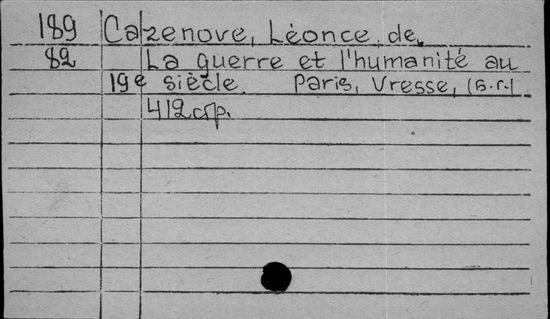 189 Cazenove, Léonce, de.
82 La guerre et l'humanité au
19e siècle. Paris, Vresse, (б.г.)
412 стр.